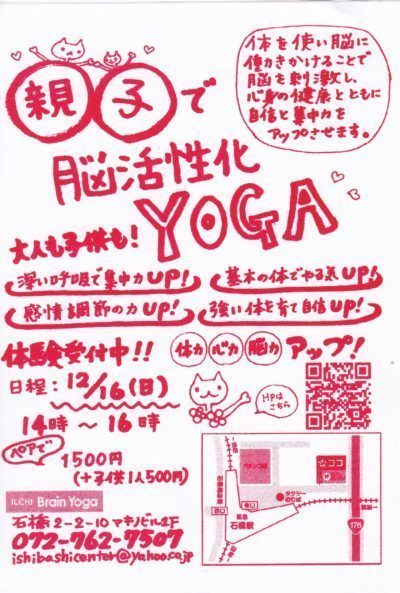 親子で
体を使い脳に
働きかけることで
脳を刺激し、
心身の健康とともに
自信と集中力を
アップさせます。
脳活性化
YOGA
大人も子供も!
深い呼吸で集中力UP!
基本の体でやる気UP!
感情調節の力UP!
強い体を育て自信UP!
体験受付中!!
体力 心力 脳力 アップ!
日程:12/16(日)
14時〜16時
HPは
こちら
ペアで
1500円
(+子供1人500円)
ILCHI Brain Yoga
石橋2-2-10マキノビル2F
072-762-7507
ishibashicenter@yahoo.co.jp
パチンコ店
☆ココ
タクシー
のりば
西口
東口
阪急
石橋駅
176